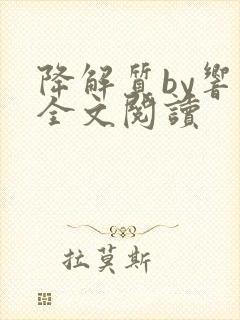 降解質by響
全文閱讀
拉莫斯